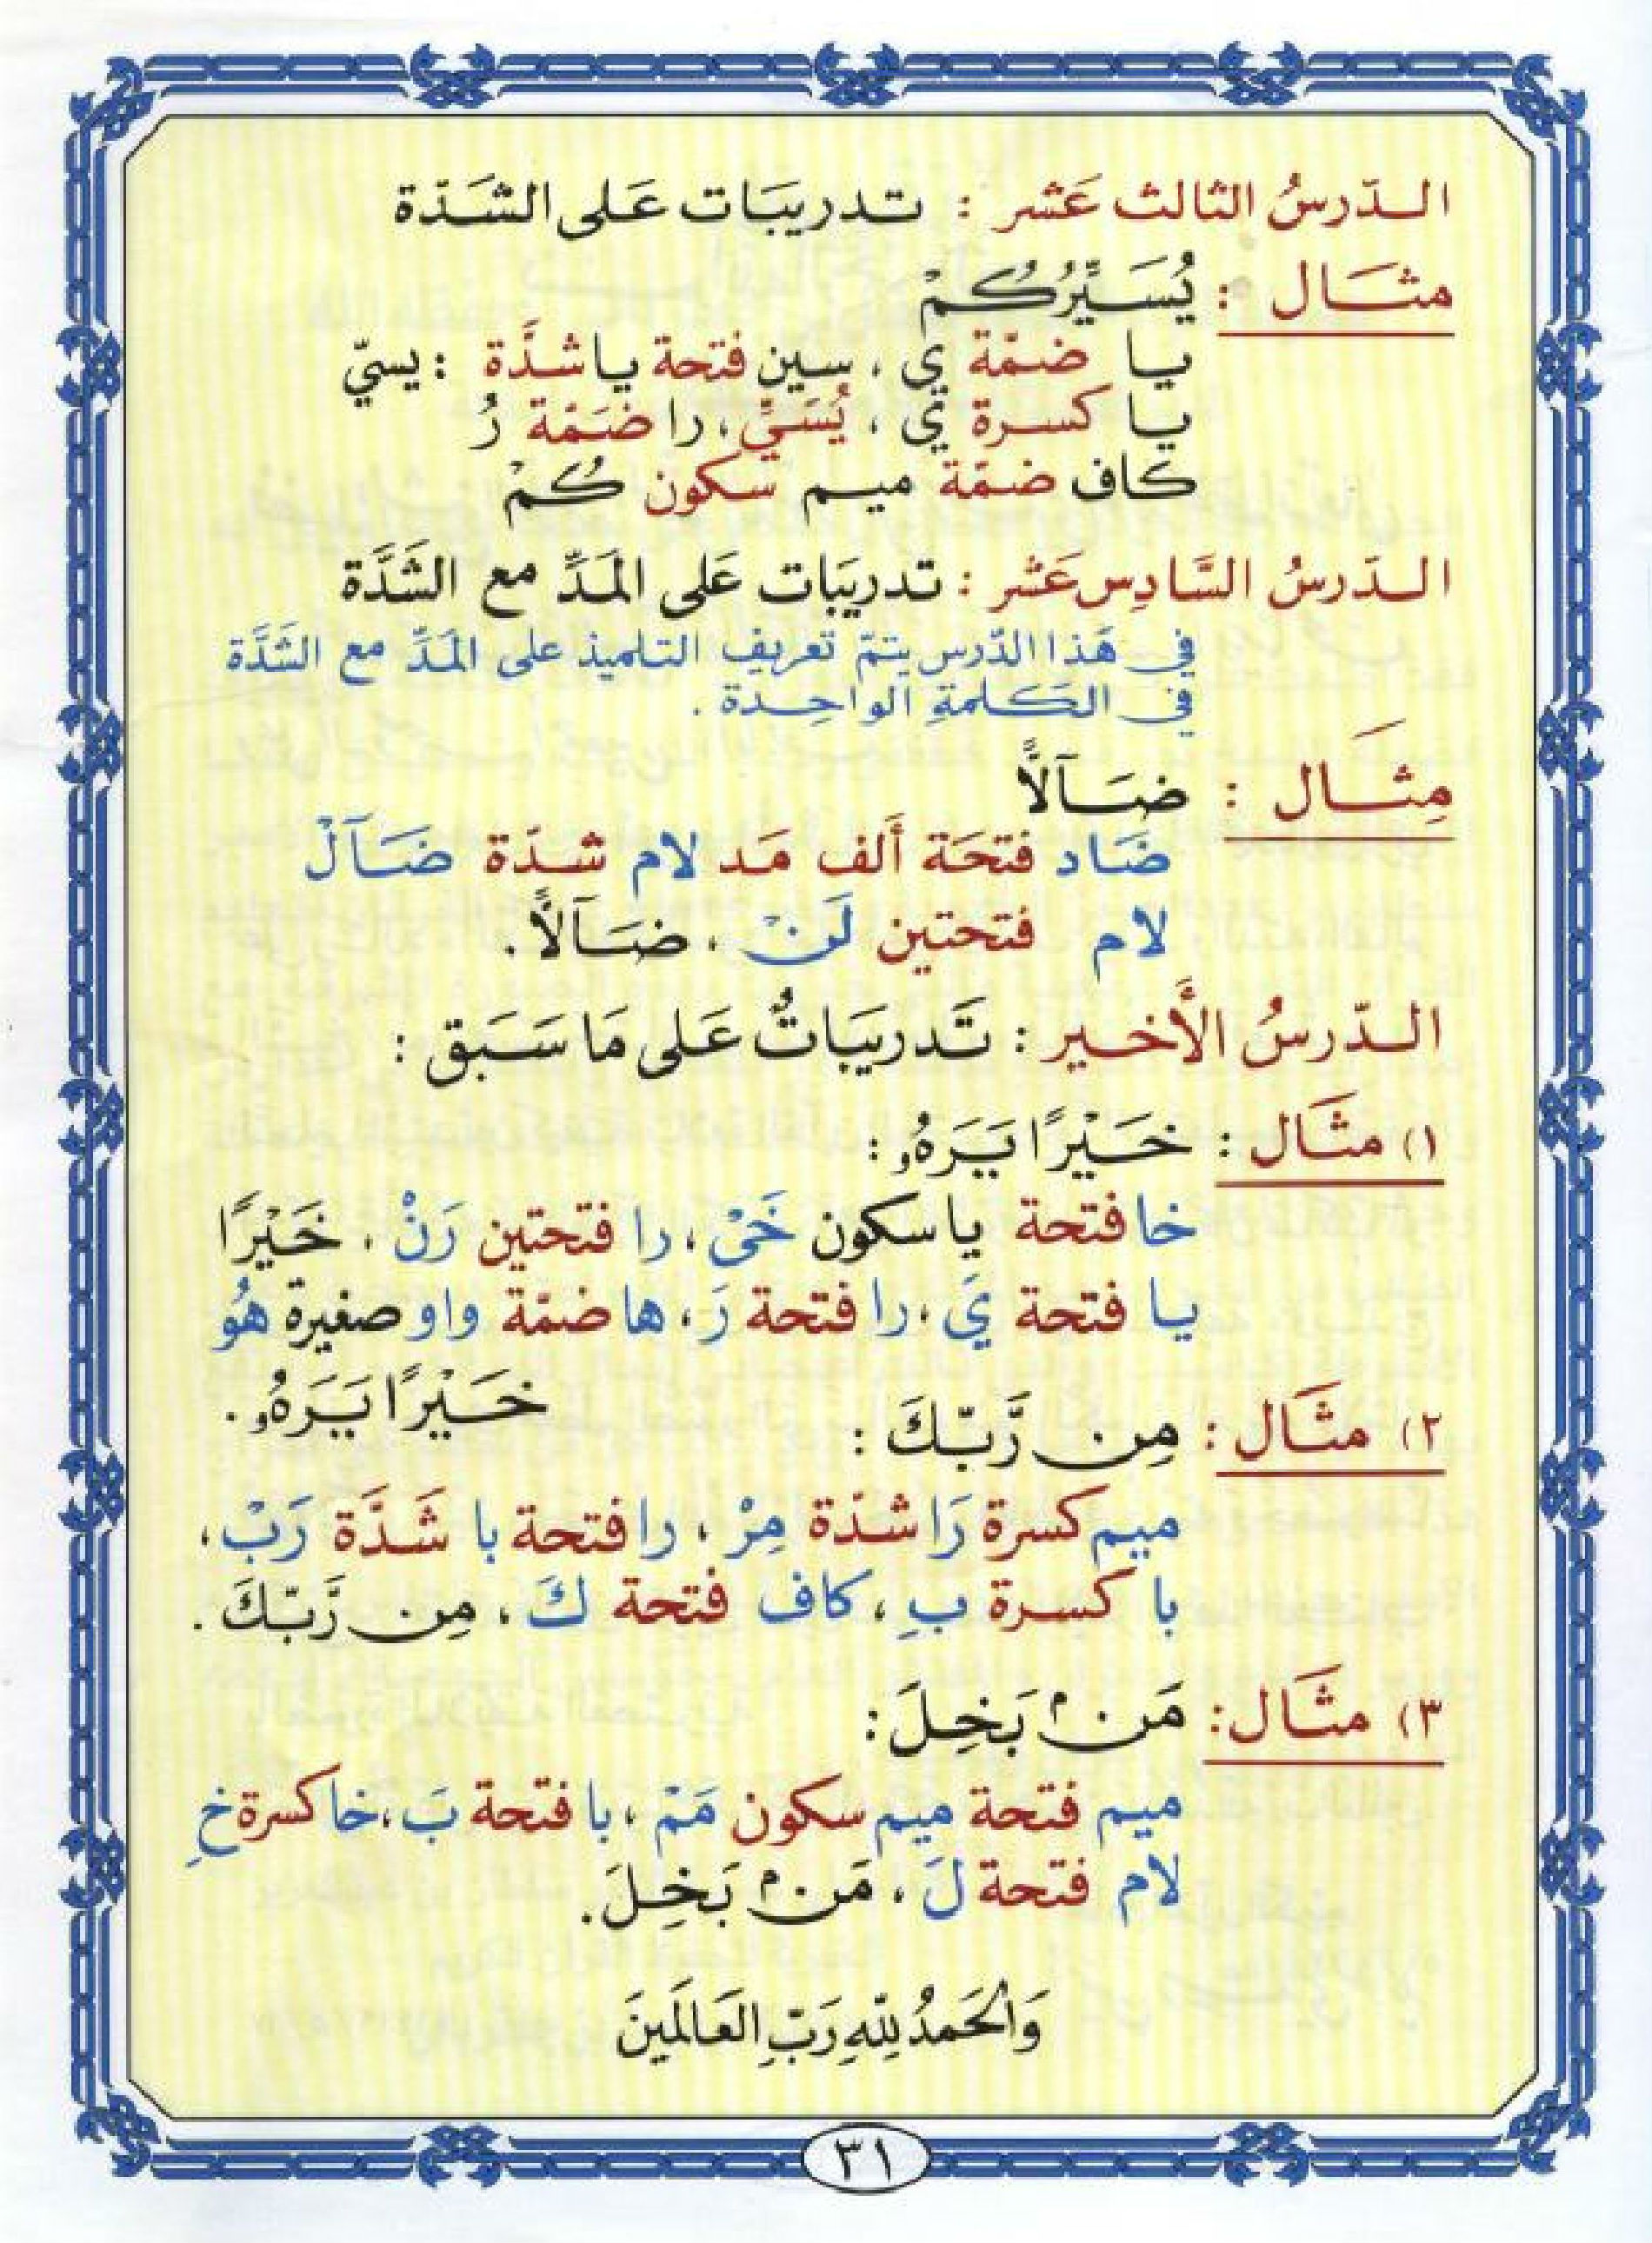 الدّرسُ الثالث عَشر : تدريبَات عَلى الشَدّة
مثَال : يُسَيِّرُكُمْ
يا ضمّة يُ ، سين فتحة يا شدَّة : يسيّ
يا كسرة يِ ، يُسَيِّ ، را ضَمّة رُ
كاف ضمّة ميم سكون كُمْ
الدّرسُ السَّادِس عَشر : تدريَبات عَلى المَدِّ مع الشَدَّة
في هَذا الدّرس يتمّ تعريف التلميذ على المَدِّ مع الشَدَّة
في الكَلمةِ الواحِدة .
مِثَال : ضَآلًّا
ضَاد فتحَة أَلف مَد لام شدّة ضَآلْ
لام فتحتين لَنْ ، ضَآلًّا .
الدّرسُ الأَخير : تَدريَباتٌ عَلى مَا سَبَق :
١) مثَال : خَيْرًا يَرَهُۥ :
خا فتحة يا سكون خَيْ ، را فتحتين رَنْ ، خَيْرًا
يا فتحة يَ ، را فتحة رَ ، ها ضمّة واو صغيرة هُو
خَيْرًا يَرَهُۥ .
٢) مثَال : مِن رَّبِّكَ :
ميم كسرة رَا شدّة مِرْ ، را فتحة با شَدَّة رَبْ ،
با كسرة بِ ، كاف فتحة كَ ، مِن رَّبِّكَ .
٣) مثَال : مَنۢ بَخِلَ :
ميم فتحة ميم سكون مَمْ ، با فتحة بَ ، خا كسرة خِ
لام فتحة لَ ، مَنۢ بَخِلَ .
وَالحَمدُ لِلّهِ رَبِّ العَالَمينَ
٣١